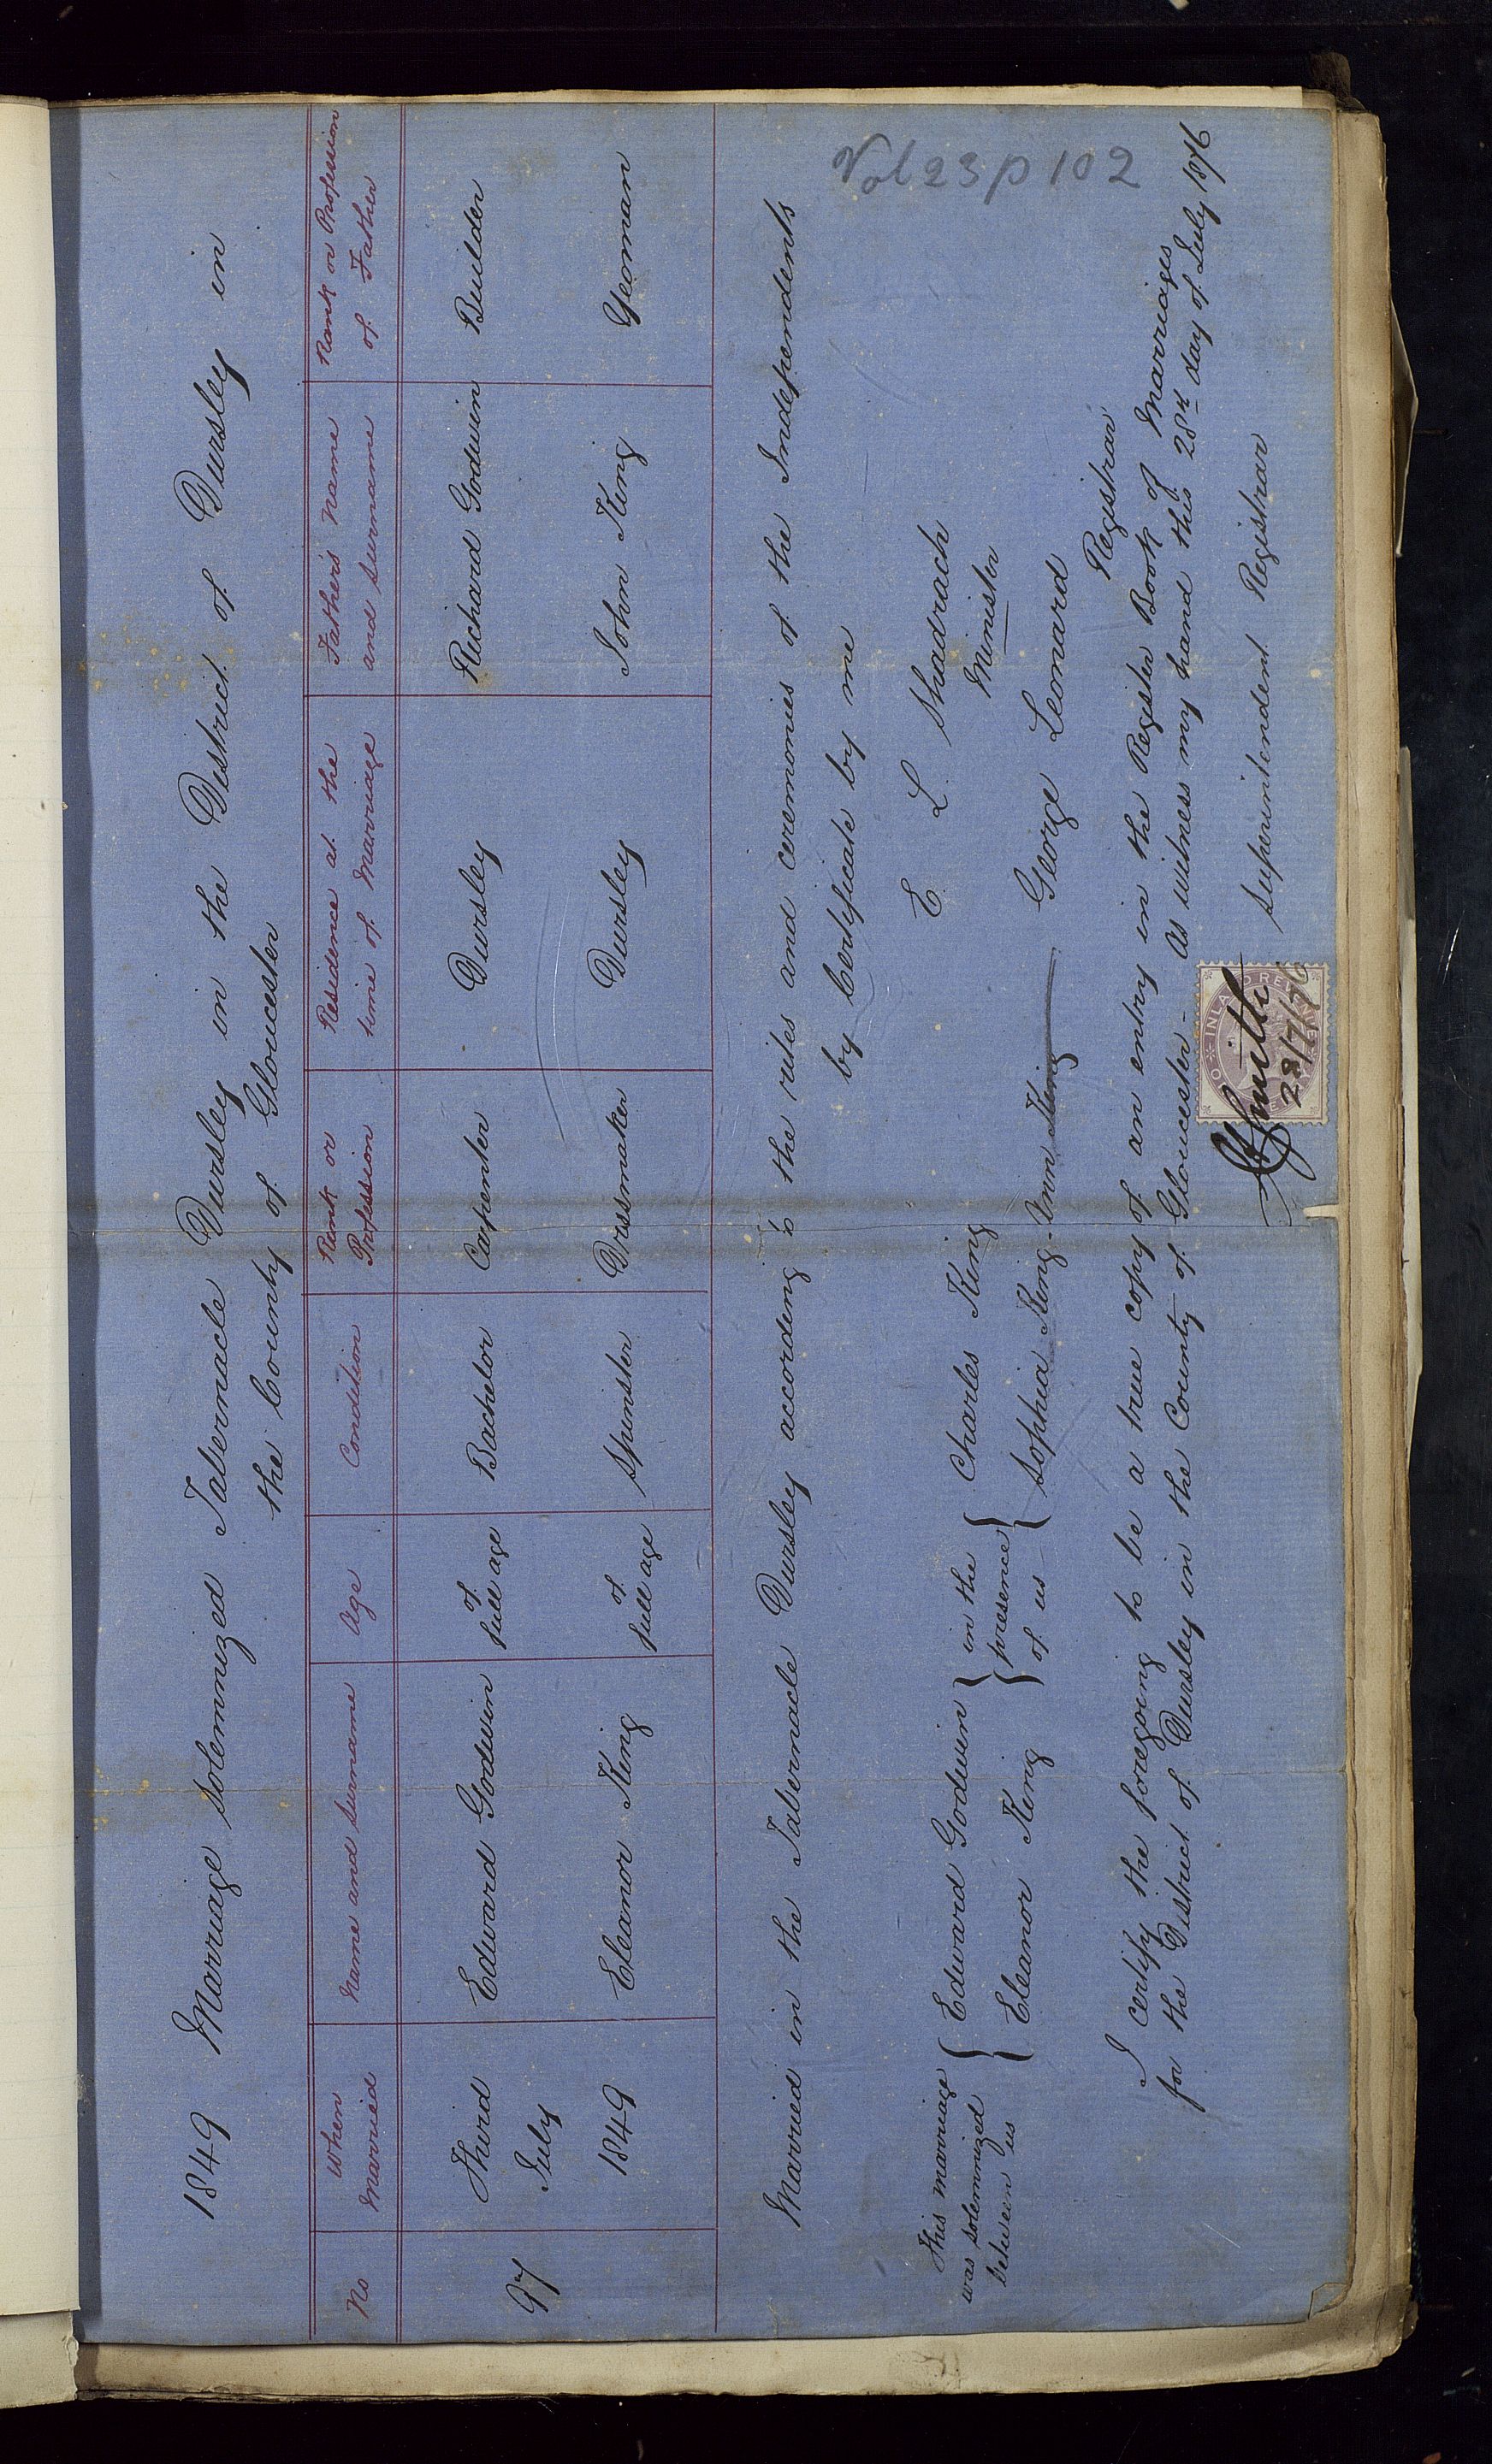 1849 Marriage Solemnized Tabernacle Dursley in the District of Dursley in
the County of Gloucester
No When Married Name and Surname Age Condition Rank or Profession Residence at the time of Marriage Father's Name and Surname Rank or Profession of Father
97 Third July 1849 Edward Godwin of full age Bachelor Carpenter Dursley Richard Godwin Builder
Eleanor King of full age Spinster Dressmaker Dursley John King Yeoman
Married in the Tabernacle Dursley according to the rites and ceremonies of the Independents
by Certificate by me
E. L. Shadrach
Minister
This marriage was solemnized between us { Edward Godwin } in the presence of us { Charles King
Eleanor King Sophia King - Ann King George Leonard
Registrar
I certify the foregoing to be a true copy of an entry in the Register Book of Marriages
for the District of Dursley in the County of Gloucester - As witness my hand this 28th day of July 1876
Superintendent Registrar
INLAND REVENUE
Smith
28/7/76
Vol 23 p 102